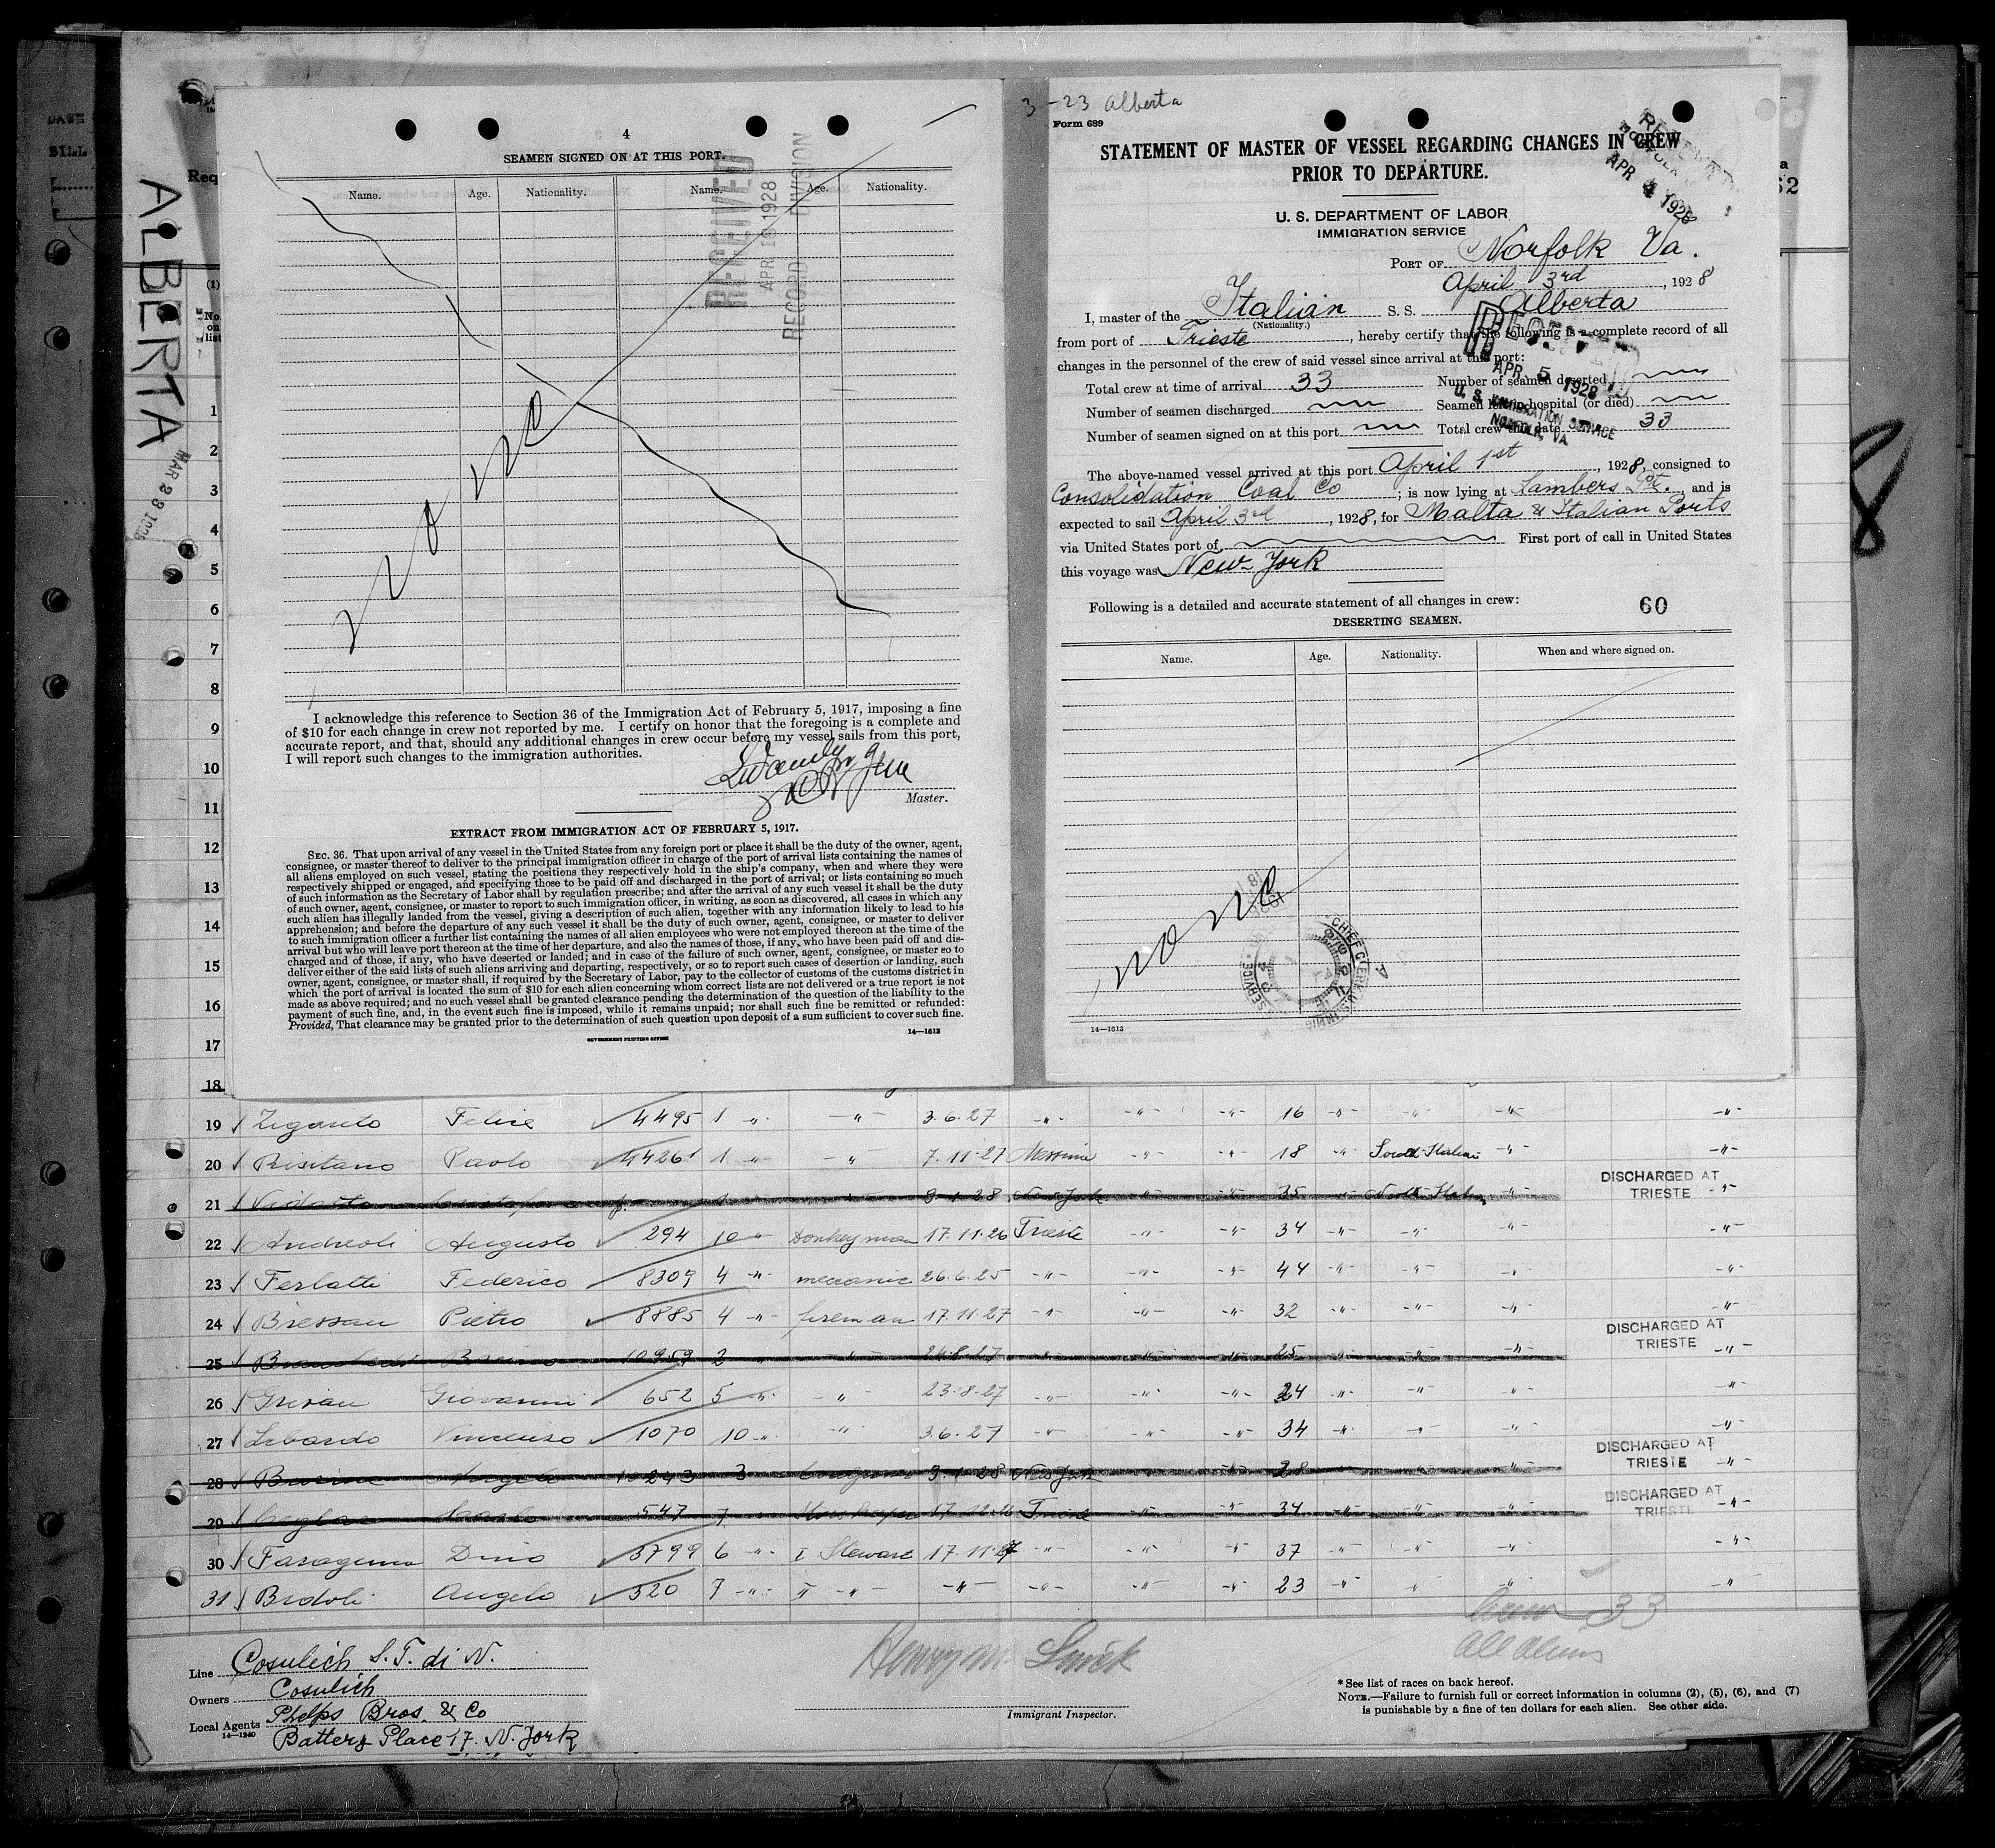 ALBERTA
MAR 28 1928
4
SEAMEN SIGNED ON AT THIS PORT.
Name. Age. Nationality. Name. Age. Nationality.
RECEIVED
APR 19 1928
RECORD DIVISION
none
I acknowledge this reference to Section 36 of the Immigration Act of February 5, 1917, imposing a fine
of $10 for each change in crew not reported by me. I certify on honor that the foregoing is a complete and
accurate report, and that, should any additional changes in crew occur before my vessel sails from this port,
I will report such changes to the immigration authorities.
Master.
EXTRACT FROM IMMIGRATION ACT OF FEBRUARY 5, 1917.
SEC. 36. That upon arrival of any vessel in the United States from any foreign port or place it shall be the duty of the owner, agent,
consignee, or master thereof to deliver to the principal immigration officer in charge of the port of arrival lists containing the names of
all aliens employed on such vessel, stating the positions they respectively hold in the ship's company, when and where they were
respectively shipped or engaged, and specifying those to be paid off and discharged in the port of arrival; or lists containing so much
of such information as the Secretary of Labor shall by regulation prescribe; and after the arrival of any such vessel it shall be the duty
of such owner, agent, consignee, or master to report to such immigration officer, in writing, as soon as discovered, all cases in which any
such alien has illegally landed from the vessel, giving a description of such alien, together with any information likely to lead to his
apprehension; and before the departure of any such vessel it shall be the duty of such owner, agent, consignee, or master to deliver
to such immigration officer a further list containing the names of all alien employees who were not employed thereon at the time of the
arrival but who will leave port thereon at the time of her departure, and also the names of those, if any, who have been paid off and dis-
charged and of those, if any, who have deserted or landed; and in case of the failure of such owner, agent, consignee, or master so to
deliver either of the said lists of such aliens arriving and departing, respectively, or so to report such cases of desertion or landing, such
owner, agent, consignee, or master shall, if required by the Secretary of Labor, pay to the collector of customs of the customs district in
which the port of arrival is located the sum of $10 for each alien concerning whom correct lists are not delivered or a true report is not
made as above required; and no such vessel shall be granted clearance pending the determination of the question of the liability to the
payment of such fine, and, in the event such fine is imposed, while it remains unpaid; nor shall such fine be remitted or refunded:
Provided, That clearance may be granted prior to the determination of such question upon deposit of a sum sufficient to cover such fine.
14—1613
GOVERNMENT PRINTING OFFICE
3-23 Alberta
Form 689
STATEMENT OF MASTER OF VESSEL REGARDING CHANGES IN CREW
PRIOR TO DEPARTURE.
APR 4 1928
U. S. DEPARTMENT OF LABOR
IMMIGRATION SERVICE
PORT OF Norfolk Va.
April 3rd, 1928
I, master of the Italian S. S. Alberta
(Nationality.)
from port of Trieste, hereby certify that the following is a complete record of all
changes in the personnel of the crew of said vessel since arrival at this port:
Total crew at time of arrival 33 Number of seamen deserted
Number of seamen discharged Seamen left in hospital (or died)
Number of seamen signed on at this port Total crew this date 33
APR 5 1928
U. S. IMMIGRATION SERVICE
NORFOLK, VA
The above-named vessel arrived at this port April 1st, 1928, consigned to
Consolidation Coal Co; is now lying at Lambers Pt., and is
expected to sail April 3rd, 1928, for Malta & Italian Ports
via United States port of First port of call in United States
this voyage was New-York
Following is a detailed and accurate statement of all changes in crew: 60
DESERTING SEAMEN.
Name. Age. Nationality. When and where signed on.
none
14—1613
Req
(1)
No. on list
1
2
3
4
5
6
7
8
9
10
11
12
13
14
15
16
17
18
19 Felice 4495 1 -"- -"- 3.6.27 -"- -"- -"- 16 -"- -"- -"- -"-
20 Risitano Paolo 1 -"- -"- 7.11.27 Messina -"- -"- 18 -"- South Italian -"- -"-
21 35 -"- DISCHARGED AT TRIESTE -"-
22 Andreoli Augusto 294 10 -"- Donkeyman 17.11.26 Trieste -"- -"- 34 -"- -"- -"- -"-
23 Ferlatti Federico 8309 4 -"- meccanic 26.6.25 -"- -"- -"- 44 -"- -"- -"- -"-
24 Bressan Pietro 8885 4 -"- fireman 17.11.27 -"- -"- -"- 32 -"- -"- -"- -"-
25 10959 2 24.8.27 25 DISCHARGED AT TRIESTE -"-
26 Grisan Giovanni 652 5 -"- -"- 23.8.27 -"- -"- -"- 24 -"- -"- -"- -"-
27 Lebardo Vincenzo 1070 10 -"- -"- 3.6.27 -"- -"- -"- 34 -"- -"- -"- -"-
28 Angelo 3 New York 28 DISCHARGED AT TRIESTE -"-
29 547 7 Trieste 34 DISCHARGED AT TRIESTE -"-
30 Faraguna Dino 3799 6 -"- I Steward 17.11.27 -"- -"- -"- 37 -"- -"- -"- -"-
31 Bidoli Angelo 320 7 -"- II -"- -"- -"- -"- -"- 23 -"- -"- -"- -"-
Crew 33
All aliens
Line Cosulich S.T. di N.
Owners Cosulich
Local Agents Phelps Bros. & Co
14—1240
Battery Place 17. N. York
Immigrant Inspector.
* See list of races on back hereof.
NOTE.—Failure to furnish full or correct information in columns (2), (5), (6), and (7)
is punishable by a fine of ten dollars for each alien. See other side.